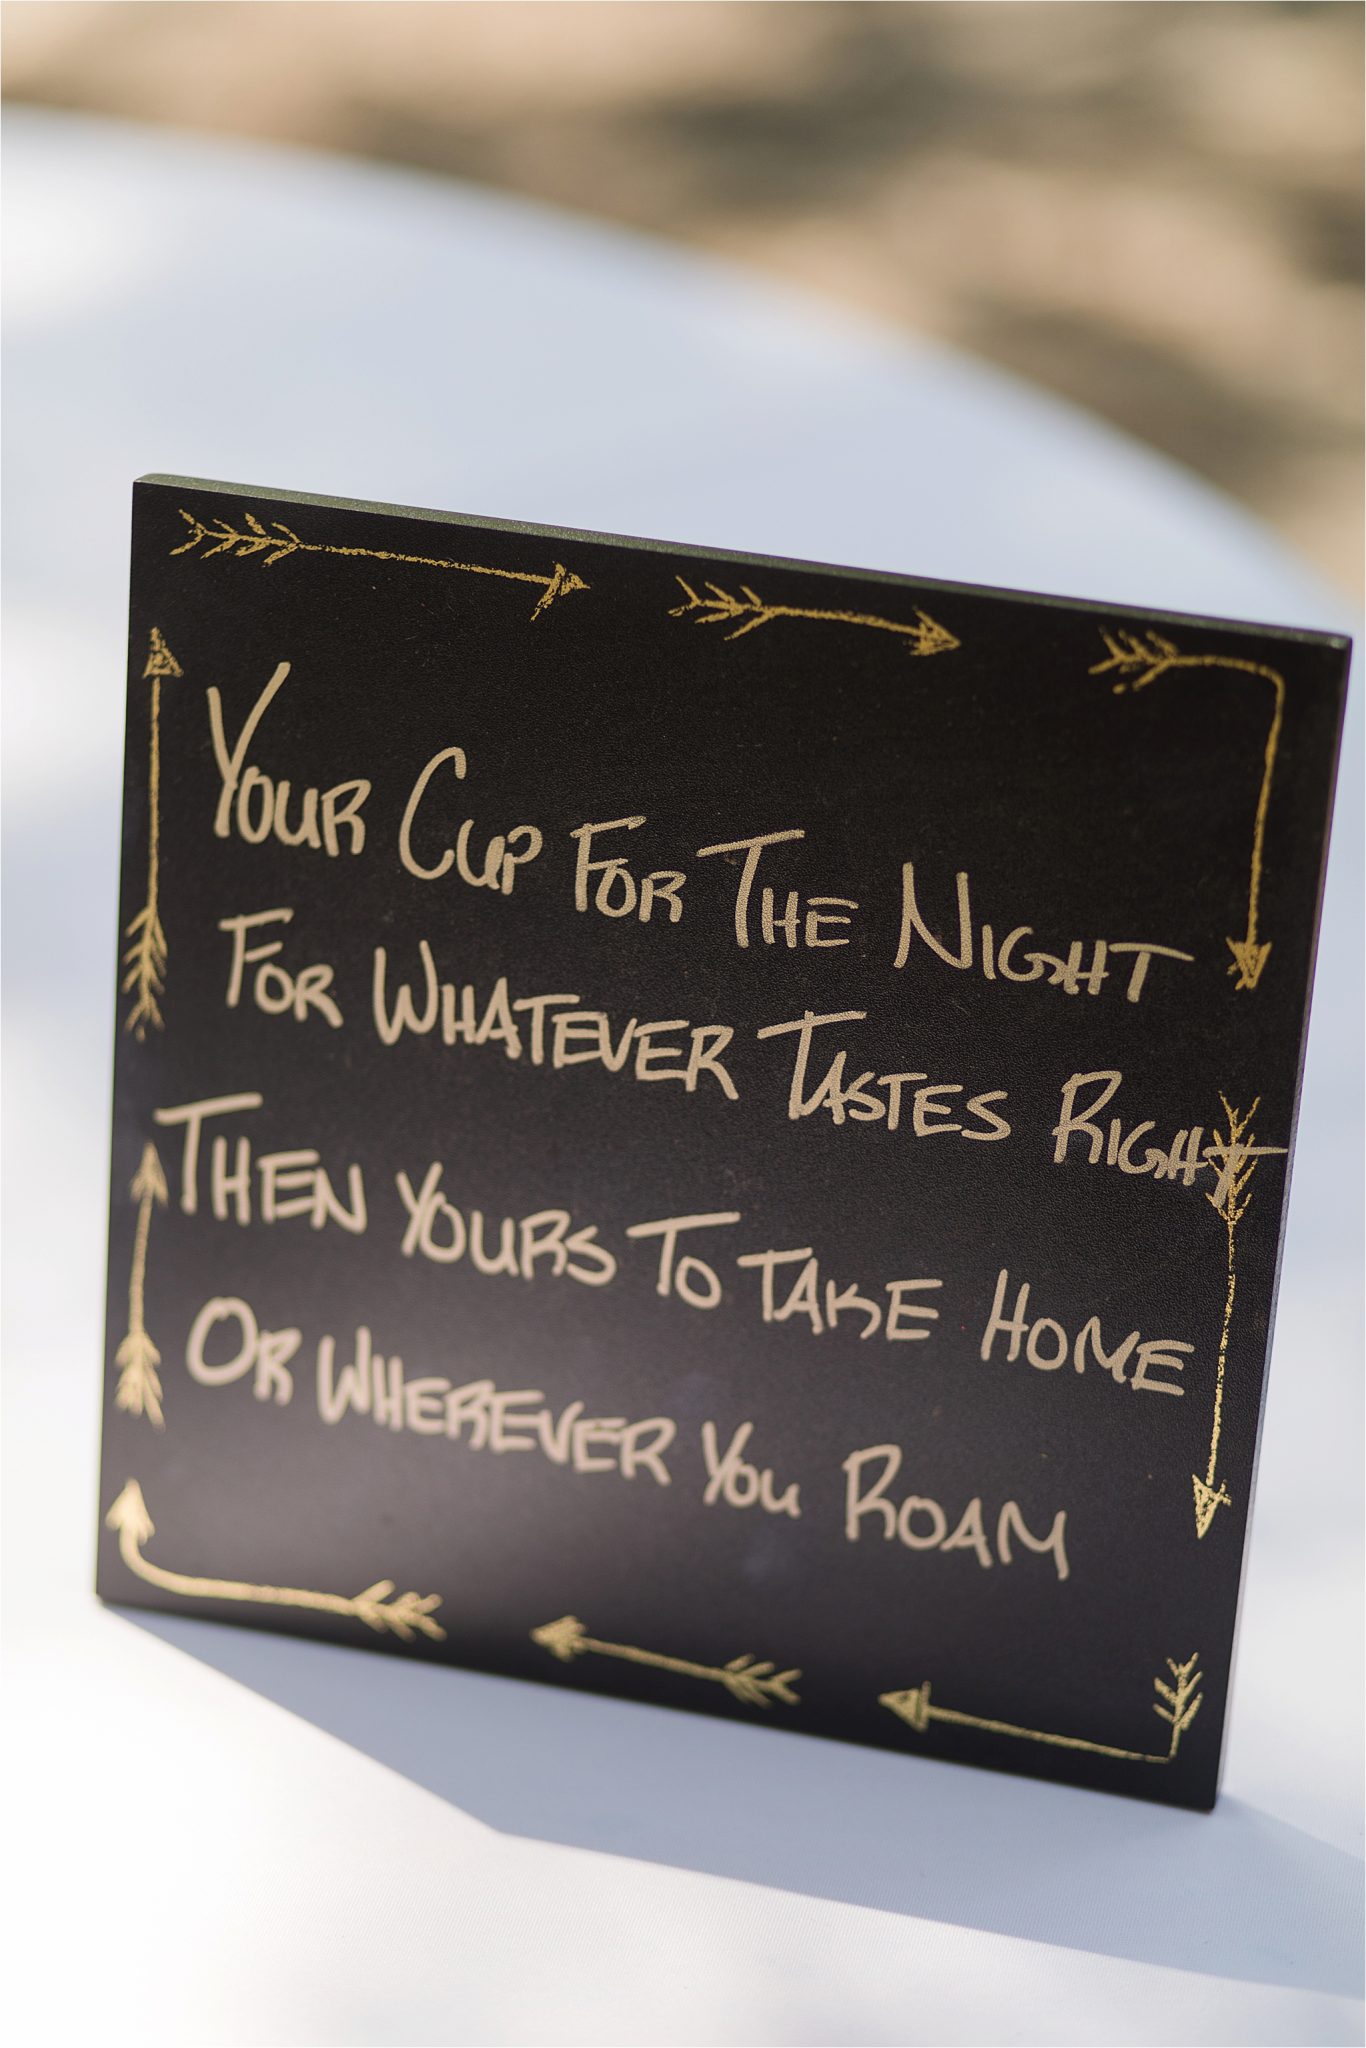 Your Cup For The Night
For Whatever Tastes Right
Then Yours To Take Home
Or Wherever You Roam